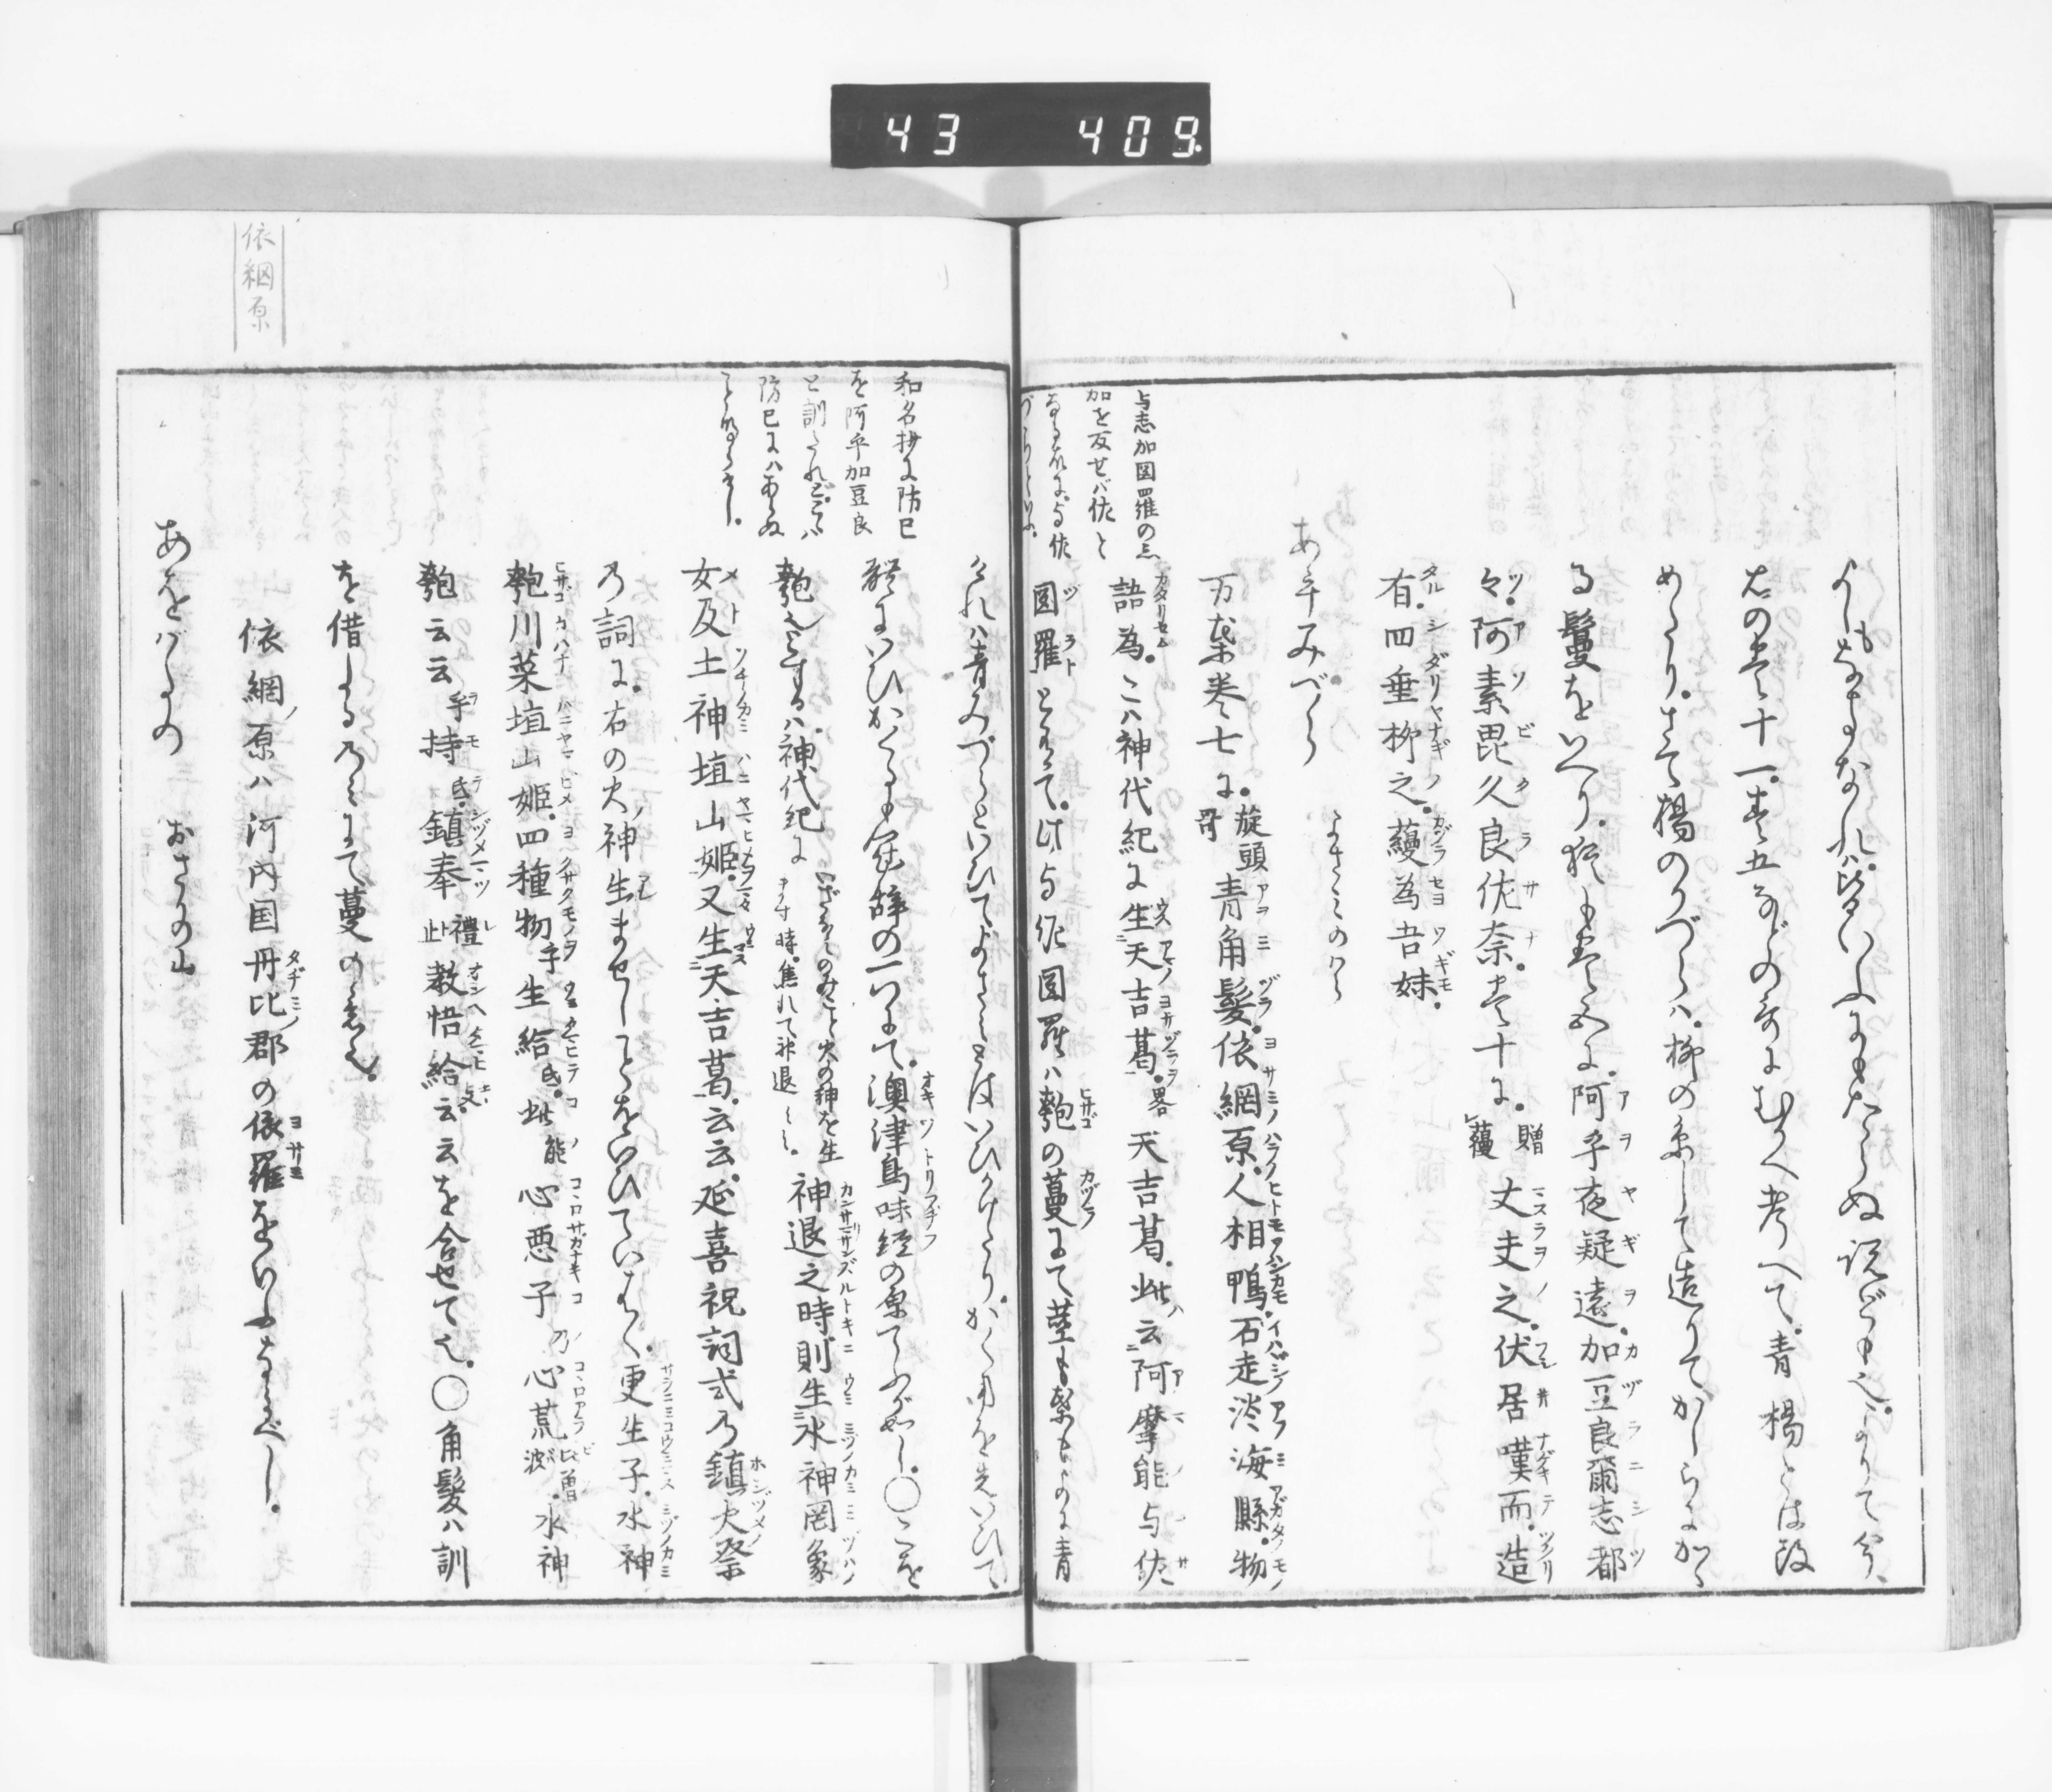 43 409.
よしもなきなれバ皆いふにもたらぬ説ども也よりて今
右の巻十一巻五などの哥にむかへ考へて青楊とは改
めたりさて楊のかづらハ柳の糸して造りてかしらにかく
る鬘をいへり猶も巻五に阿乎夜疑遠加豆良爾志都
々阿素毘久良佐奈巻十に贈蘰丈夫之伏居嘆而造
有四垂柳之蘰為吾妹
あをみづら よさみのはら
万葉巻七に旋頭哥青角髪依網原人相鴨石走淡海縣物
語為こハ神代紀に生天吉葛畧天吉葛此云阿摩能与佐
圖羅とありて此与佐圖羅ハ匏の蔓にて莖も葉もよに青
与志加圖羅の志
加を反せバ佐と
なる故に与佐
づらといふ
けれバ青みづらといひてよさみとはいひかけたりかく用を先いひて
躰にいひかくるも冠辞の一つにて澳津鳥味經の原てふが如し○こを
匏とするハ神代紀にいざなみのみこと火の神を生ます時焦れて神退之時則生水神罔象
女及土神埴山姫又生天吉葛云云延喜祝詞式乃鎮火祭
乃詞に右の火神生ませしことをいひていはく更生子水神
匏川菜埴山姫四種物乎生給氐此能心悪子乃心荒比曽波水神
匏云云乎持氐鎮奉禮止教悟給支云云を合せて也○角髪ハ訓
を借しるのみにて蔓の意也
和名抄に防已
を阿乎加豆良
と訓たれどこハ
防已にハあらぬ
こと明らけし
依網原
依網原ハ河内国丹比郡の依羅をいふなるべし
あをばたの おさかの山